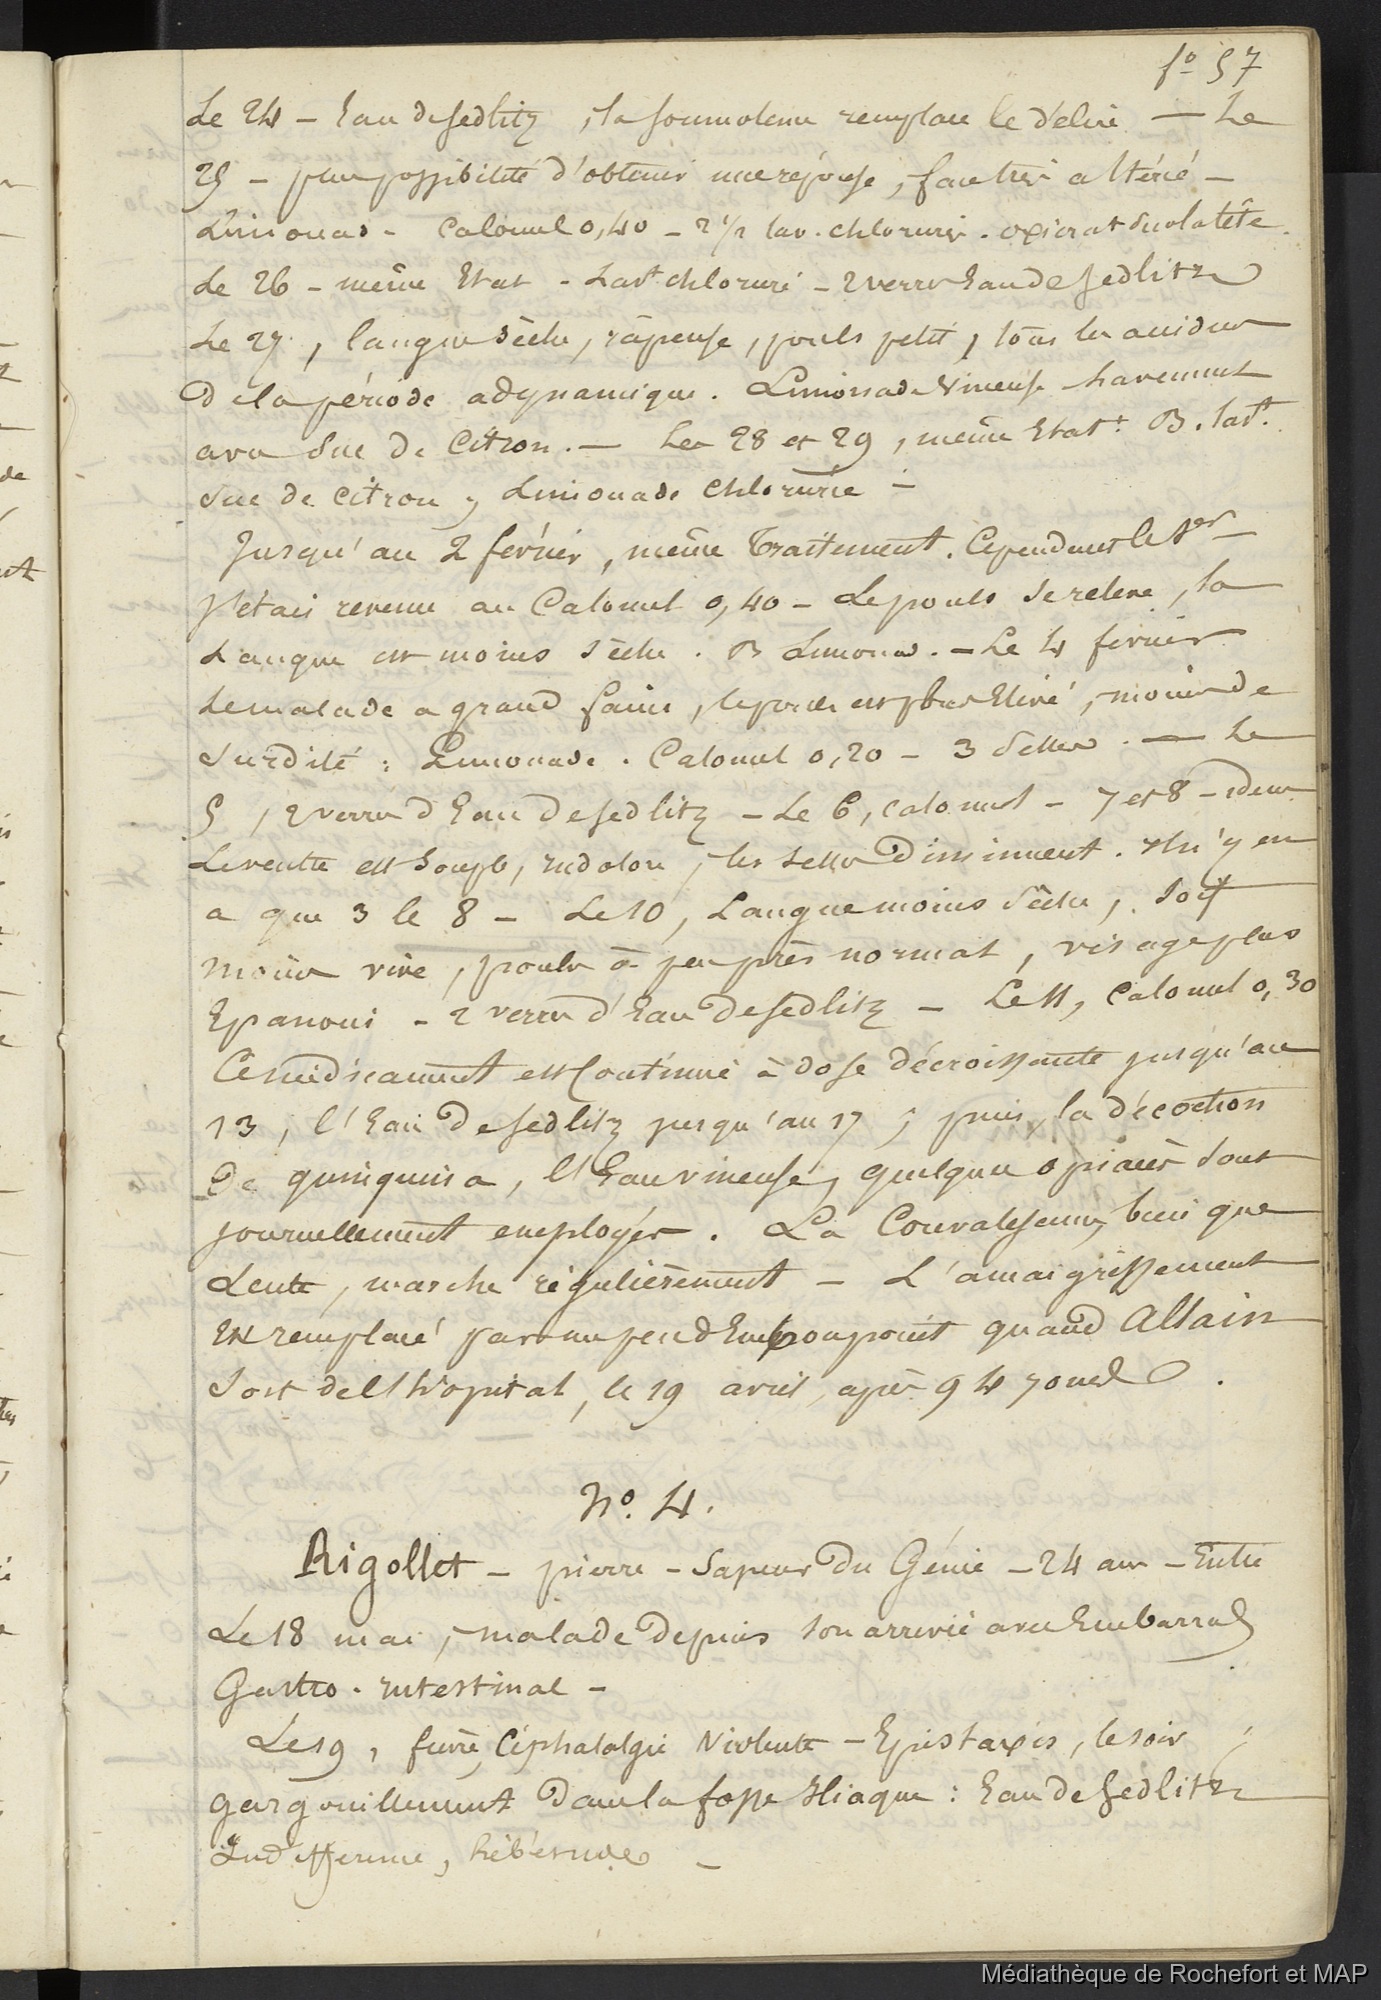 fo 57
Le 24 – Eau de Sedlitz, la somnolence remplace le délire — Le
25 – plus possibilité d'obtenir une réponse, face très altérée –
Limonad. – Calomel 0,40 – 2 1/2 lav. chlorurés. oxicrat sur la tête.
Le 26 – même Etat – Lavt chloruré – 2 verres Eau de Sedlitz
Le 27, langue sèche, râpeuse, pouls petit, tous les accidens
de la période adynamique. Limonade Vineuse Lavement
avec Suc de Citron. — Les 28 et 29, même Etat. B. Lavt.
Suc de citron, Limonade Chlorurée –
Jusqu'au 2 février, même Traitement. Cependant le 1er
j'étais revenu au Calomel 0,40 – Le pouls se relève, la
Langue est moins sèche. B Limonad. – Le 4 février
Le malade a grand faim, le pouls est plus Elevé, moins de
Surdité : Limonade. Calomel 0,20 – 3 Selles. — Le
5, 2 verres d'Eau de Sedlitz – Le 6, calomel – 7 et 8 – idem
Le ventre est Souple, indolore, les selles Diminuent. il n'y en
a que 3 le 8 – Le 10, Langue moins sèche, Soif
moins vive, pouls à peu près normal, visage plus
Epanoui – 2 verres d'Eau de Sedlitz – Le 11, Calomel 0,30
Ce médicament est Continué à dose décroissante jusqu'au
13, l'Eau de Sedlitz jusqu'au 17, puis la décoction
de quinquina, l'Eau vineuse, quelques opiacés sont
journellement employés. La Convalescence, bien que
Lente, marche régulièrement – L'amaigrissement
Est remplacé par un peu d'Embonpoint quand Allain
Sort de l'hôpital, le 19 avril, après 94 jours.
No. 4.
Rigollet – pierre – Sapeur Du Génie – 24 ans – Entre
Le 18 mai, malade depuis son arrivée avec Embarras
Gastro-intestinal –
Le 19, fièvre, Céphalalgie Violente – Epistaxis, le soir,
gargouillement dans la fosse Iliaque : Eau de Sedlitz
Indifférence, hébétude –
Médiathèque de Rochefort et MAP